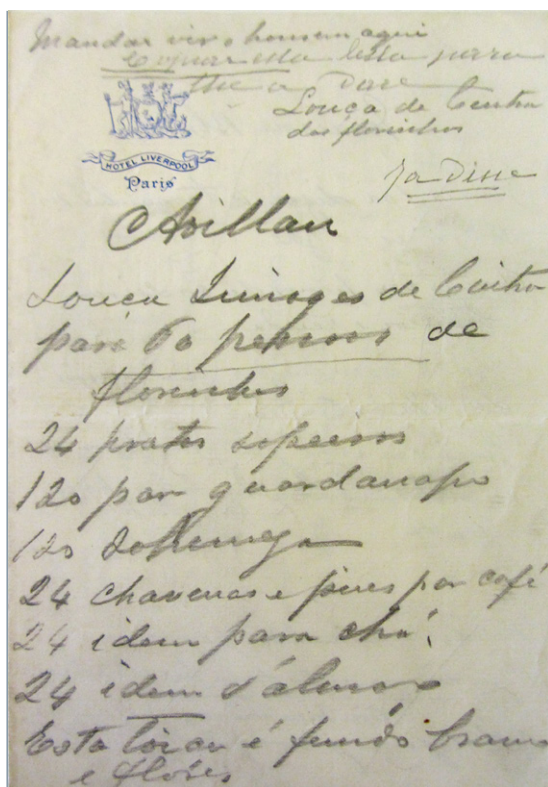 Mandar vir o homem aqui
esta para
Louça de Cintra
das florinhas
HOTEL LIVERPOOL
Paris
Ja disse
Louça Limoges de Cintra
para 60 pessoas de
florinhas
24 pratos sopeiros
120 par guardanapo
120 sobremesa
24 chavenas e pires par café
24 idem para chá
24 idem d'almoço
Esta loiça é fundo branco
e flores